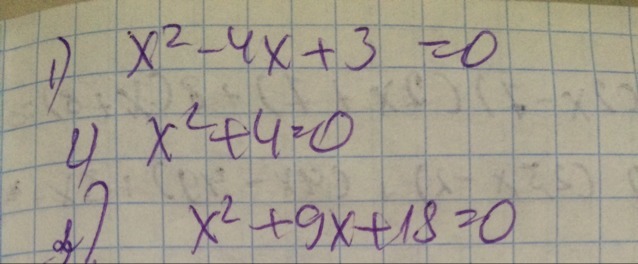 1) x² - 4x + 3 = 0
4) x² + 4 = 0
) x² + 9x + 18 = 0